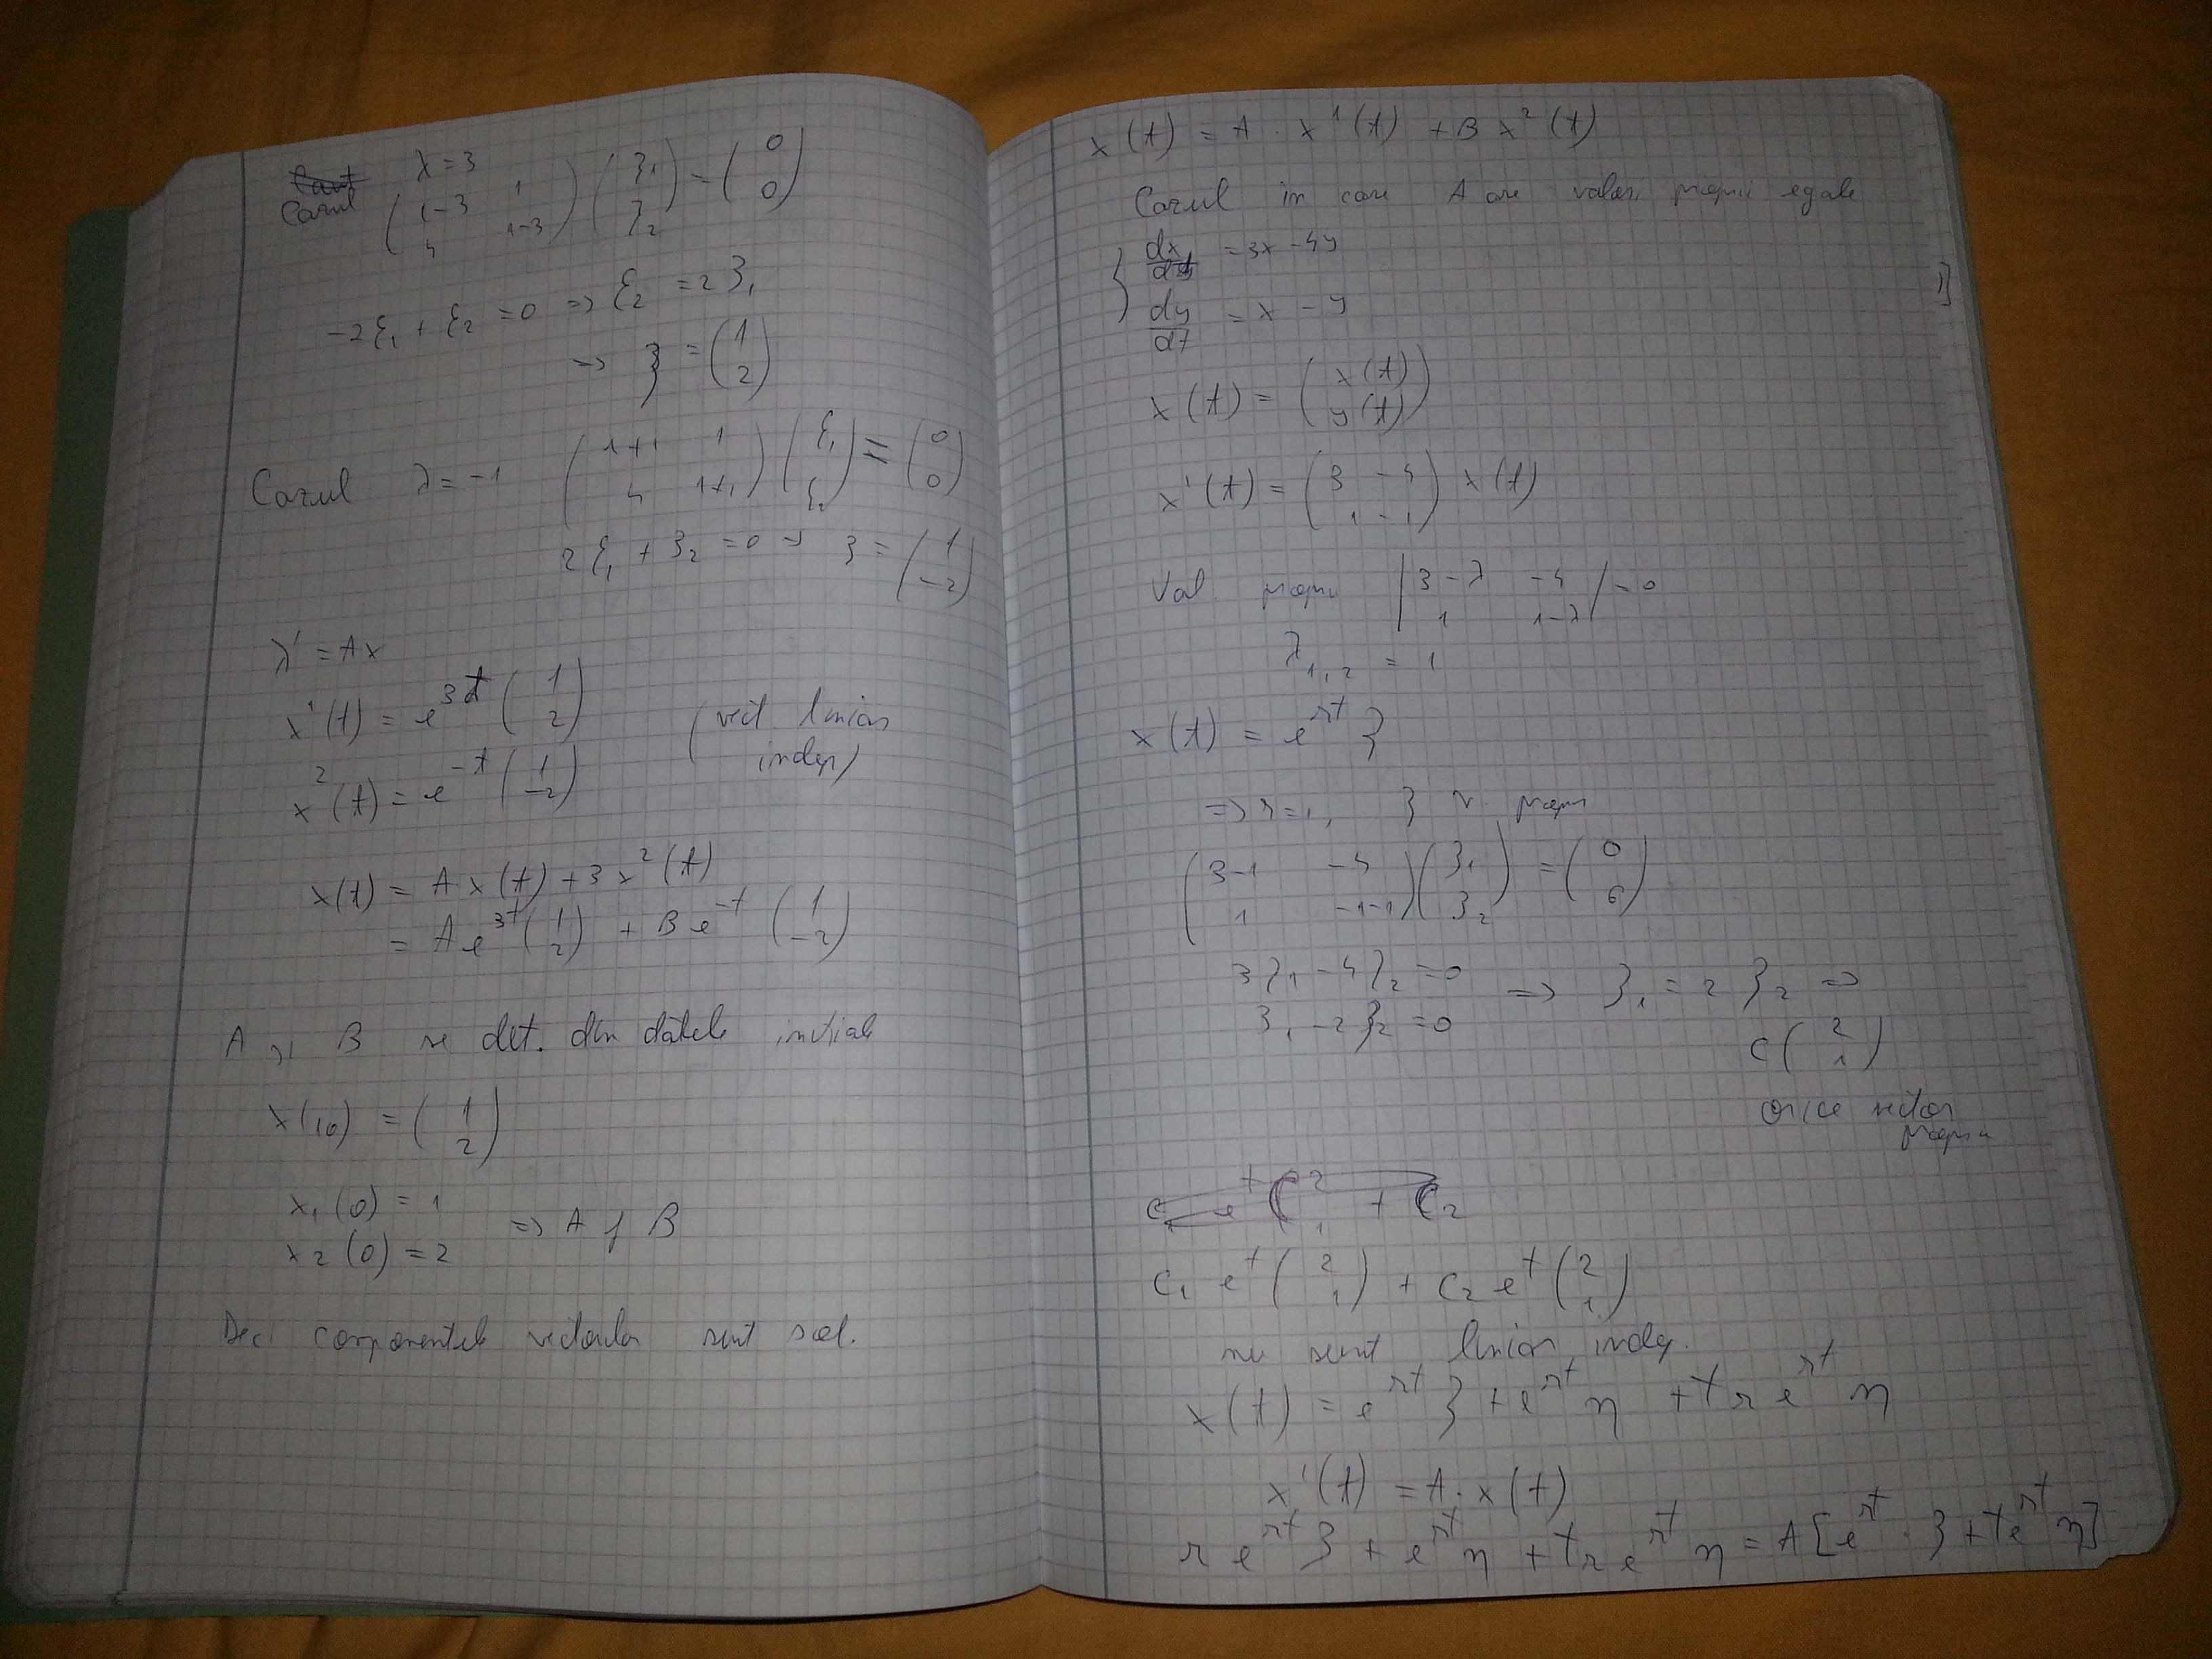 λ = 3
Cazul (1-3 1 ; 4 1-3) (ξ₁ ; ξ₂) = (0 ; 0)
-2ξ₁ + ξ₂ = 0 => ξ₂ = 2ξ₁
=> ξ = (1 ; 2)
Cazul λ = -1 (1+1 1 ; 4 1+1) (ξ₁ ; ξ₂) = (0 ; 0)
2ξ₁ + ξ₂ = 0 => ξ = (1 ; -2)
λ' = Ax
x¹(t) = e^{3t} (1 ; 2)
(vect. liniar
indep)
x²(t) = e^{-t} (1 ; -2)
x(t) = A x(t) + B x²(t)
= A e^{3t} (1 ; 2) + B e^{-t} (1 ; -2)
A și B se det. din datele inițiale
x(t₀) = (1 ; 2)
x₁(0) = 1
x₂(0) = 2 => A și B
Deci componentele vectorului sunt sol.
x(t) = A · x¹(t) + B x²(t)
Cazul in care A are valori proprii egale
dx/dt = 3x - 4y
dy/dt = x - y
x(t) = (x(t) ; y(t))
x'(t) = (3 -4 ; 1 -1) x(t)
Val proprii |3-λ -4 ; 1 1-λ| = 0
λ₁,₂ = 1
x(t) = e^{rt} ξ
=> r = 1, ξ v. propriu
(3-1 -4 ; 1 -1-1) (ξ₁ ; ξ₂) = (0 ; 0)
3ξ₁ - 4ξ₂ = 0
ξ₁ - 2ξ₂ = 0 => ξ₁ = 2ξ₂ =>
c (2 ; 1)
orice vector
propriu
c₁ e^t (2 ; 1) + c₂ e^t (2 ; 1)
nu sunt liniar indep.
x(t) = e^{rt} ξ + e^{rt} η + t r e^{rt} η
x'(t) = A · x(t)
r e^{rt} ξ + e^{rt} η + t r e^{rt} η = A [e^{rt} · ξ + t e^{rt} η]